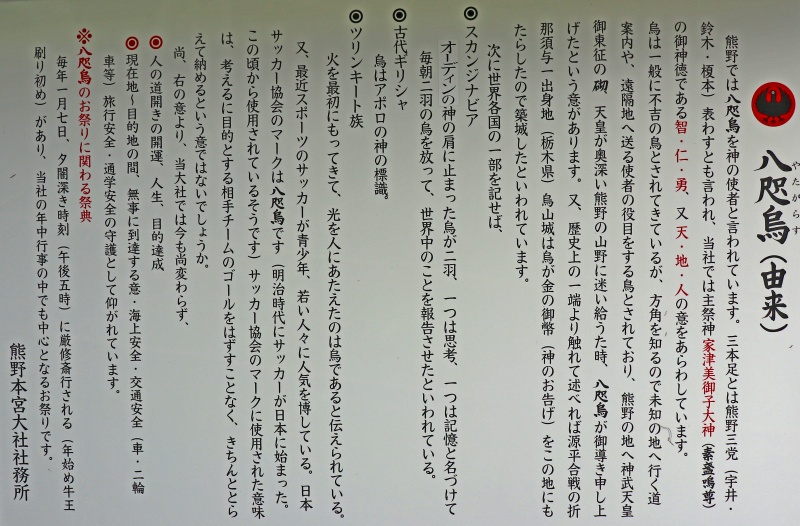 八咫烏（由来）
やたがらす
熊野では八咫烏を神の使者と言われています。三本足とは熊野三党（宇井・
鈴木・榎本）表わすとも言われ、当社では主祭神家津美御子大神（素盞嗚尊）
の御神徳である智・仁・勇、又天・地・人の意をあらわしています。
烏は一般に不吉の鳥とされてきているが、方角を知るので未知の地へ行く道
案内や、遠隔地へ送る使者の役目をする鳥とされており、熊野の地へ神武天皇
御東征の砌 天皇が奥深い熊野の山野に迷い給うた時、八咫烏が御導き申し上
げたという意があります。又、歴史上の一端より触れて述べれば源平合戦の折
那須与一出身地（栃木県）烏山城は烏が金の御幣（神のお告げ）をこの地にも
たらしたので築城したといわれています。
次に世界各国の一部を記せば、
◉スカンジナビア
オーディンの神の肩に止まった烏が二羽、一つは思考、一つは記憶と名づけて
毎朝二羽の烏を放って、世界中のことを報告させたといわれている。
◉古代ギリシャ
烏はアポロの神の標識。
◉ツリンキート族
火を最初にもってきて、光を人にあたえたのは烏であると伝えられている。
又、最近スポーツのサッカーが青少年、若い人々に人気を博している。日本
サッカー協会のマークは八咫烏です（明治時代にサッカーが日本に始まった。
この頃から使用されているそうです）サッカー協会のマークに使用された意味
は、考えるに目的とする相手チームのゴールをはずすことなく、きちんととら
えて納めるという意ではないでしょうか。
尚、右の意より、当大社では今も尚変わらず、
◉人の道開きの開運、人生、目的達成
◉現在地〜目的地の間、無事に到達する意・海上安全・交通安全（車・二輪
車等）旅行安全・通学安全の守護として仰がれています。
※八咫烏のお祭りに関わる祭典
毎年一月七日、夕闇深き時刻（午後五時）に厳修斎行される（年始め牛王
刷り初め）があり、当社の年中行事の中でも中心となるお祭りです。
熊野本宮大社社務所